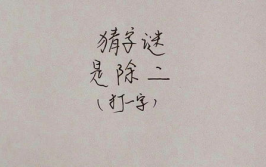 猜字谜
是除二
(打一字)